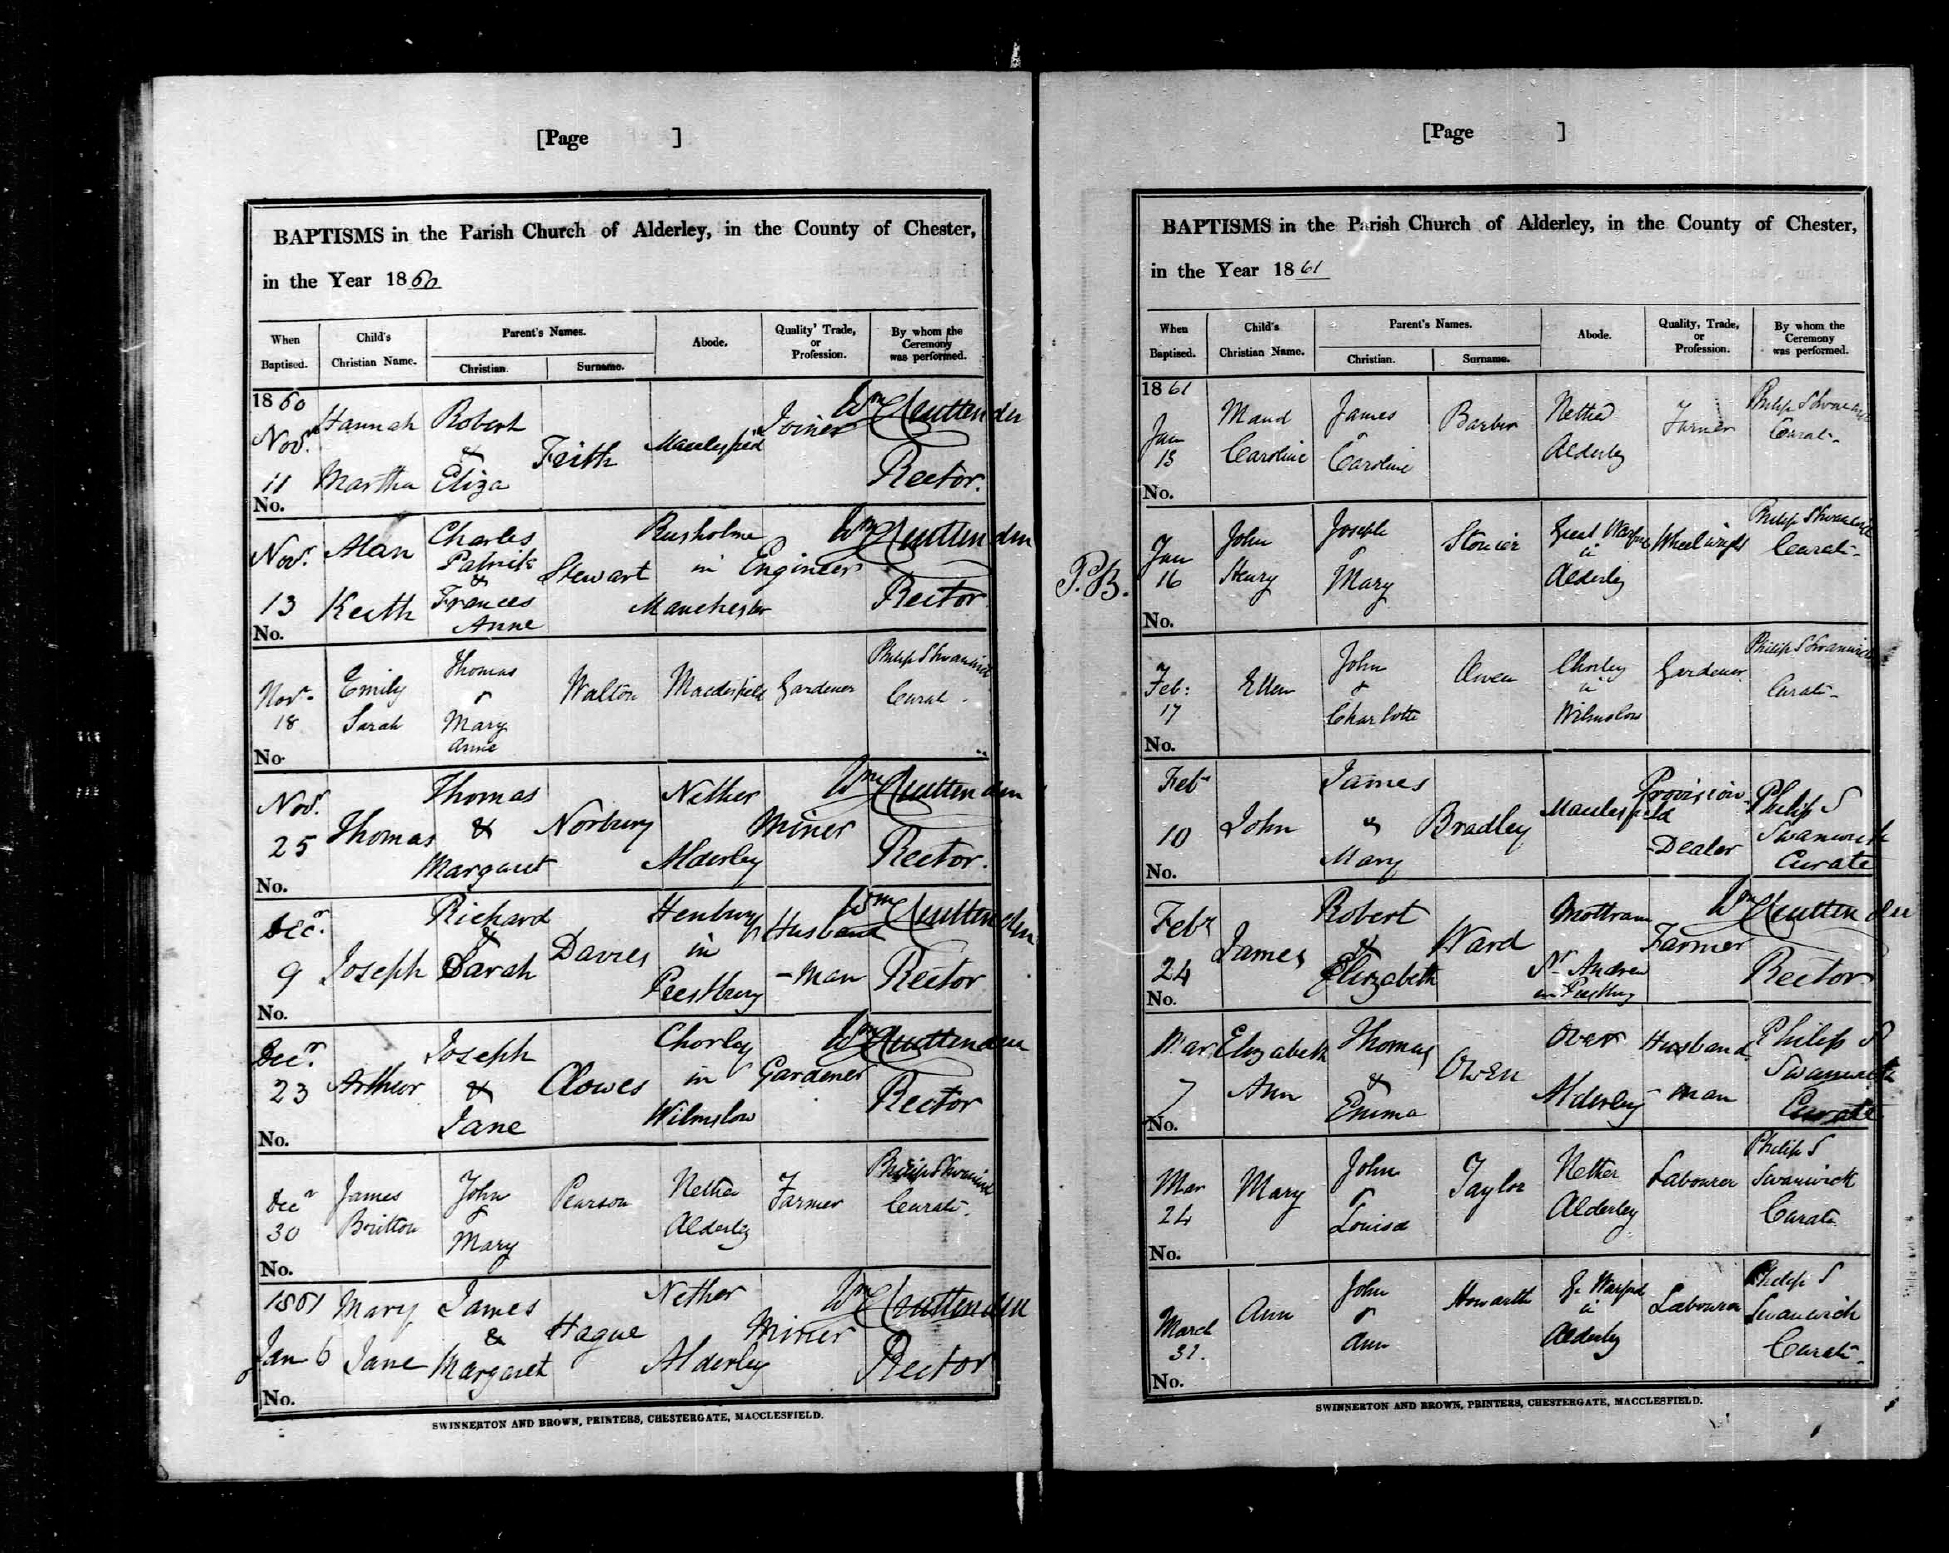 [Page ]
BAPTISMS in the Parish Church of Alderley, in the County of Chester,
in the Year 1860
When Baptised.
Child's Christian Name.
Parent's Names.
Christian.
Surname.
Abode.
Quality' Trade, or Profession.
By whom the Ceremony was performed.
1860
Novr 11
No.
Hannah Martha
Robert & Eliza
Macclesfield
Joiner
Rector.
Novr. 13
No.
Alan Keith
Charles Patrick & Frances Anne
Stewart
Rusholme in Manchester
Engineer
Rector
Novr 18
No.
Emily Sarah
Thomas & Mary Anne
Walton
Macclesfield
Gardener
Philip S Swanwick
Curate
Novr. 25
No.
Thomas
Thomas & Margaret
Norbury
Nether Alderley
Miner
Rector.
Decr. 9
No.
Joseph
Richard & Sarah
Davies
Henbury in Prestbury
Husband -man
Rector
Decr. 23
No.
Arthur
Joseph & Jane
Clowes
Chorley in Wilmslow
Gardener
Rector
Decr 30
No.
James Britton
John & Mary
Pearson
Nether Alderley
Farmer
Philip S Swanwick
Curate.
1861
Jan 6
No.
Mary Jane
James & Margaret
Hague
Nether Alderley
Miner
Rector
SWINNERTON AND BROWN, PRINTERS, CHESTERGATE, MACCLESFIELD.
[Page ]
BAPTISMS in the Parish Church of Alderley, in the County of Chester,
in the Year 1861
When Baptised.
Child's Christian Name.
Parent's Names.
Christian.
Surname.
Abode.
Quality, Trade, or Profession.
By whom the Ceremony was performed.
1861
Jan 13
No.
Maud Caroline
James & Caroline
Barber
Nether Alderley
Farmer
Philip S Swanwick
Curate
P.B.
Jan 16
No.
John Henry
Joseph & Mary
Stonier
Great Warford in Alderley
Wheelwright
Philip S Swanwick
Curate
Feb: 17
No.
Ellen
John & Charlotte
Owen
Chorley in Wilmslow
Gardener
Philip S Swanwick
Curate
Febr 10
No.
John
James & Mary
Bradley
Macclesfield
Provision -Dealer
Philip S Swanwick
Curate
Febr 24
No.
James
Robert & Elizabeth
Ward
Mottram St Andrew in Prestbury
Farmer
Rector
Mar 7
No.
Elizabeth Ann
Thomas & Emma
Owen
Over Alderley
Husband -man
Philip S Swanwick
Curate
Mar 24
No.
Mary
John & Louisa
Taylor
Nether Alderley
Labourer
Philip S Swanwick
Curate
March 31.
No.
Ann
John & Ann
Howarth
Gr Warford in Alderley
Labourer
Philip S Swanwick
Curate
SWINNERTON AND BROWN, PRINTERS, CHESTERGATE, MACCLESFIELD.